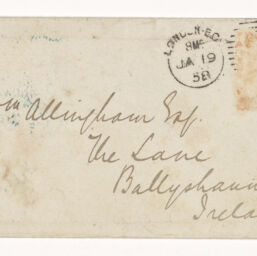 LONDON-EC
JA 19
58
Wm Allingham Esq.
The Lane
Ballyshann
Irela